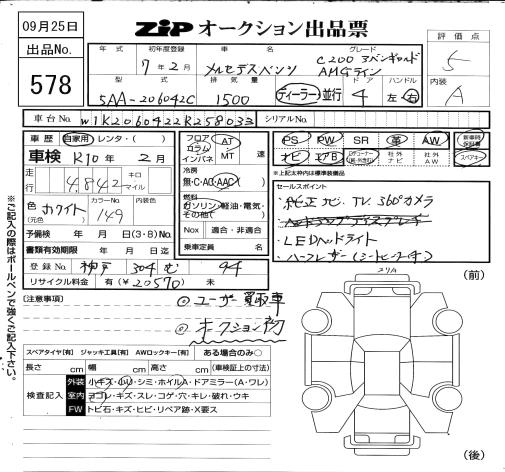 09月25日
出品No.
578
ZIP オークション出品票
評価点
5
内装
A
年式 初年度登録 車名 グレード
7年2月 メルセデスベンツ C200 アバンギャルド
AMGライン
型式 排気量 ドア ハンドル
5AA-206042C 1500 ディーラー 並行 4 左・右
車台No. W1K2060422R258033 シリアルNo.
車歴 自家用・レンタ・( )
車検 R10年2月
走行 4,842 キロ マイル
色 (元色) ホワイト カラーNo. 149 内装色
予備検 年 月 日(3・8)No.
書類有効期限 年 月 日迄
登録No. 神戸 304 む 94
リサイクル料金 有(¥20570) 無
フロア コラム インパネ AT MT 速
冷房 無・C・AC・AAC
燃料 ガソリン・軽油・電気・その他( )
Nox 適合・非適合
乗車定員 名
PS PW SR 革 AW 新車時保証書
ナビ エアB 社外ナビ 社外AW スペアキー
※上記太枠内は標準装備品
セールスポイント
・純正ナビ TV 360°カメラ
・ヘッドアップディスプレイ
・LEDヘッドライト
・ハーフレザー(シートヒーター付)
(注意事項)
◎ユーザー買取車
◎オークション初
スペアタイヤ[有] ジャッキ工具[有] AWロックキー[有] ある場合のみ○
長さ cm 幅 cm 高さ cm (車検証上の寸法)
検査記入
外装 小キズ・小U・シミ・ホイルA・ドアミラー(A・ワレ)
室内 ヨゴレ・キズ・スレ・コゲ・穴・キレ・破れ・ウキ
FW トビ石・キズ・ヒビ・リペア跡・X要ス
(前)
(後)
※ご記入の際はボールペンで強くご記入下さい。